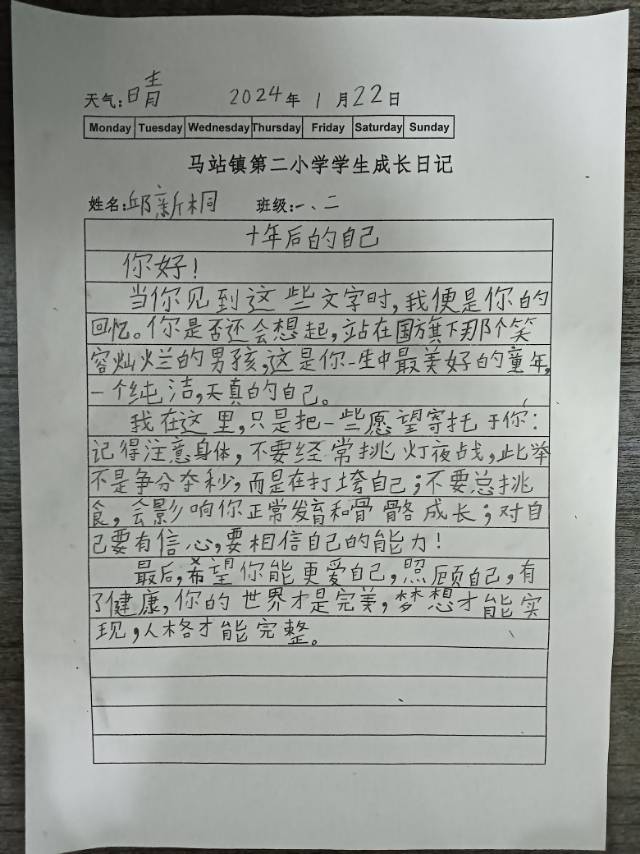 天气:晴 2024年1月22日
Monday Tuesday Wednesday Thursday Friday Saturday Sunday
马站镇第二小学学生成长日记
姓名:邱新桐 班级:一、二
十年后的自己
你好!
当你见到这些文字时,我便是你的
回忆。你是否还会想起,站在国旗下那个笑
容灿烂的男孩,这是你一生中最美好的童年,
一个纯洁,天真的自己。
我在这里,只是把一些愿望寄托于你:
记得注意身体,不要经常挑灯夜战,此举
不是争分夺秒,而是在打垮自己;不要总挑
食,会影响你正常发育和骨骼成长;对自
己要有信心,要相信自己的能力!
最后,希望你能更爱自己,照顾自己,有
了健康,你的世界才是完美,梦想才能实
现,人格才能完整。